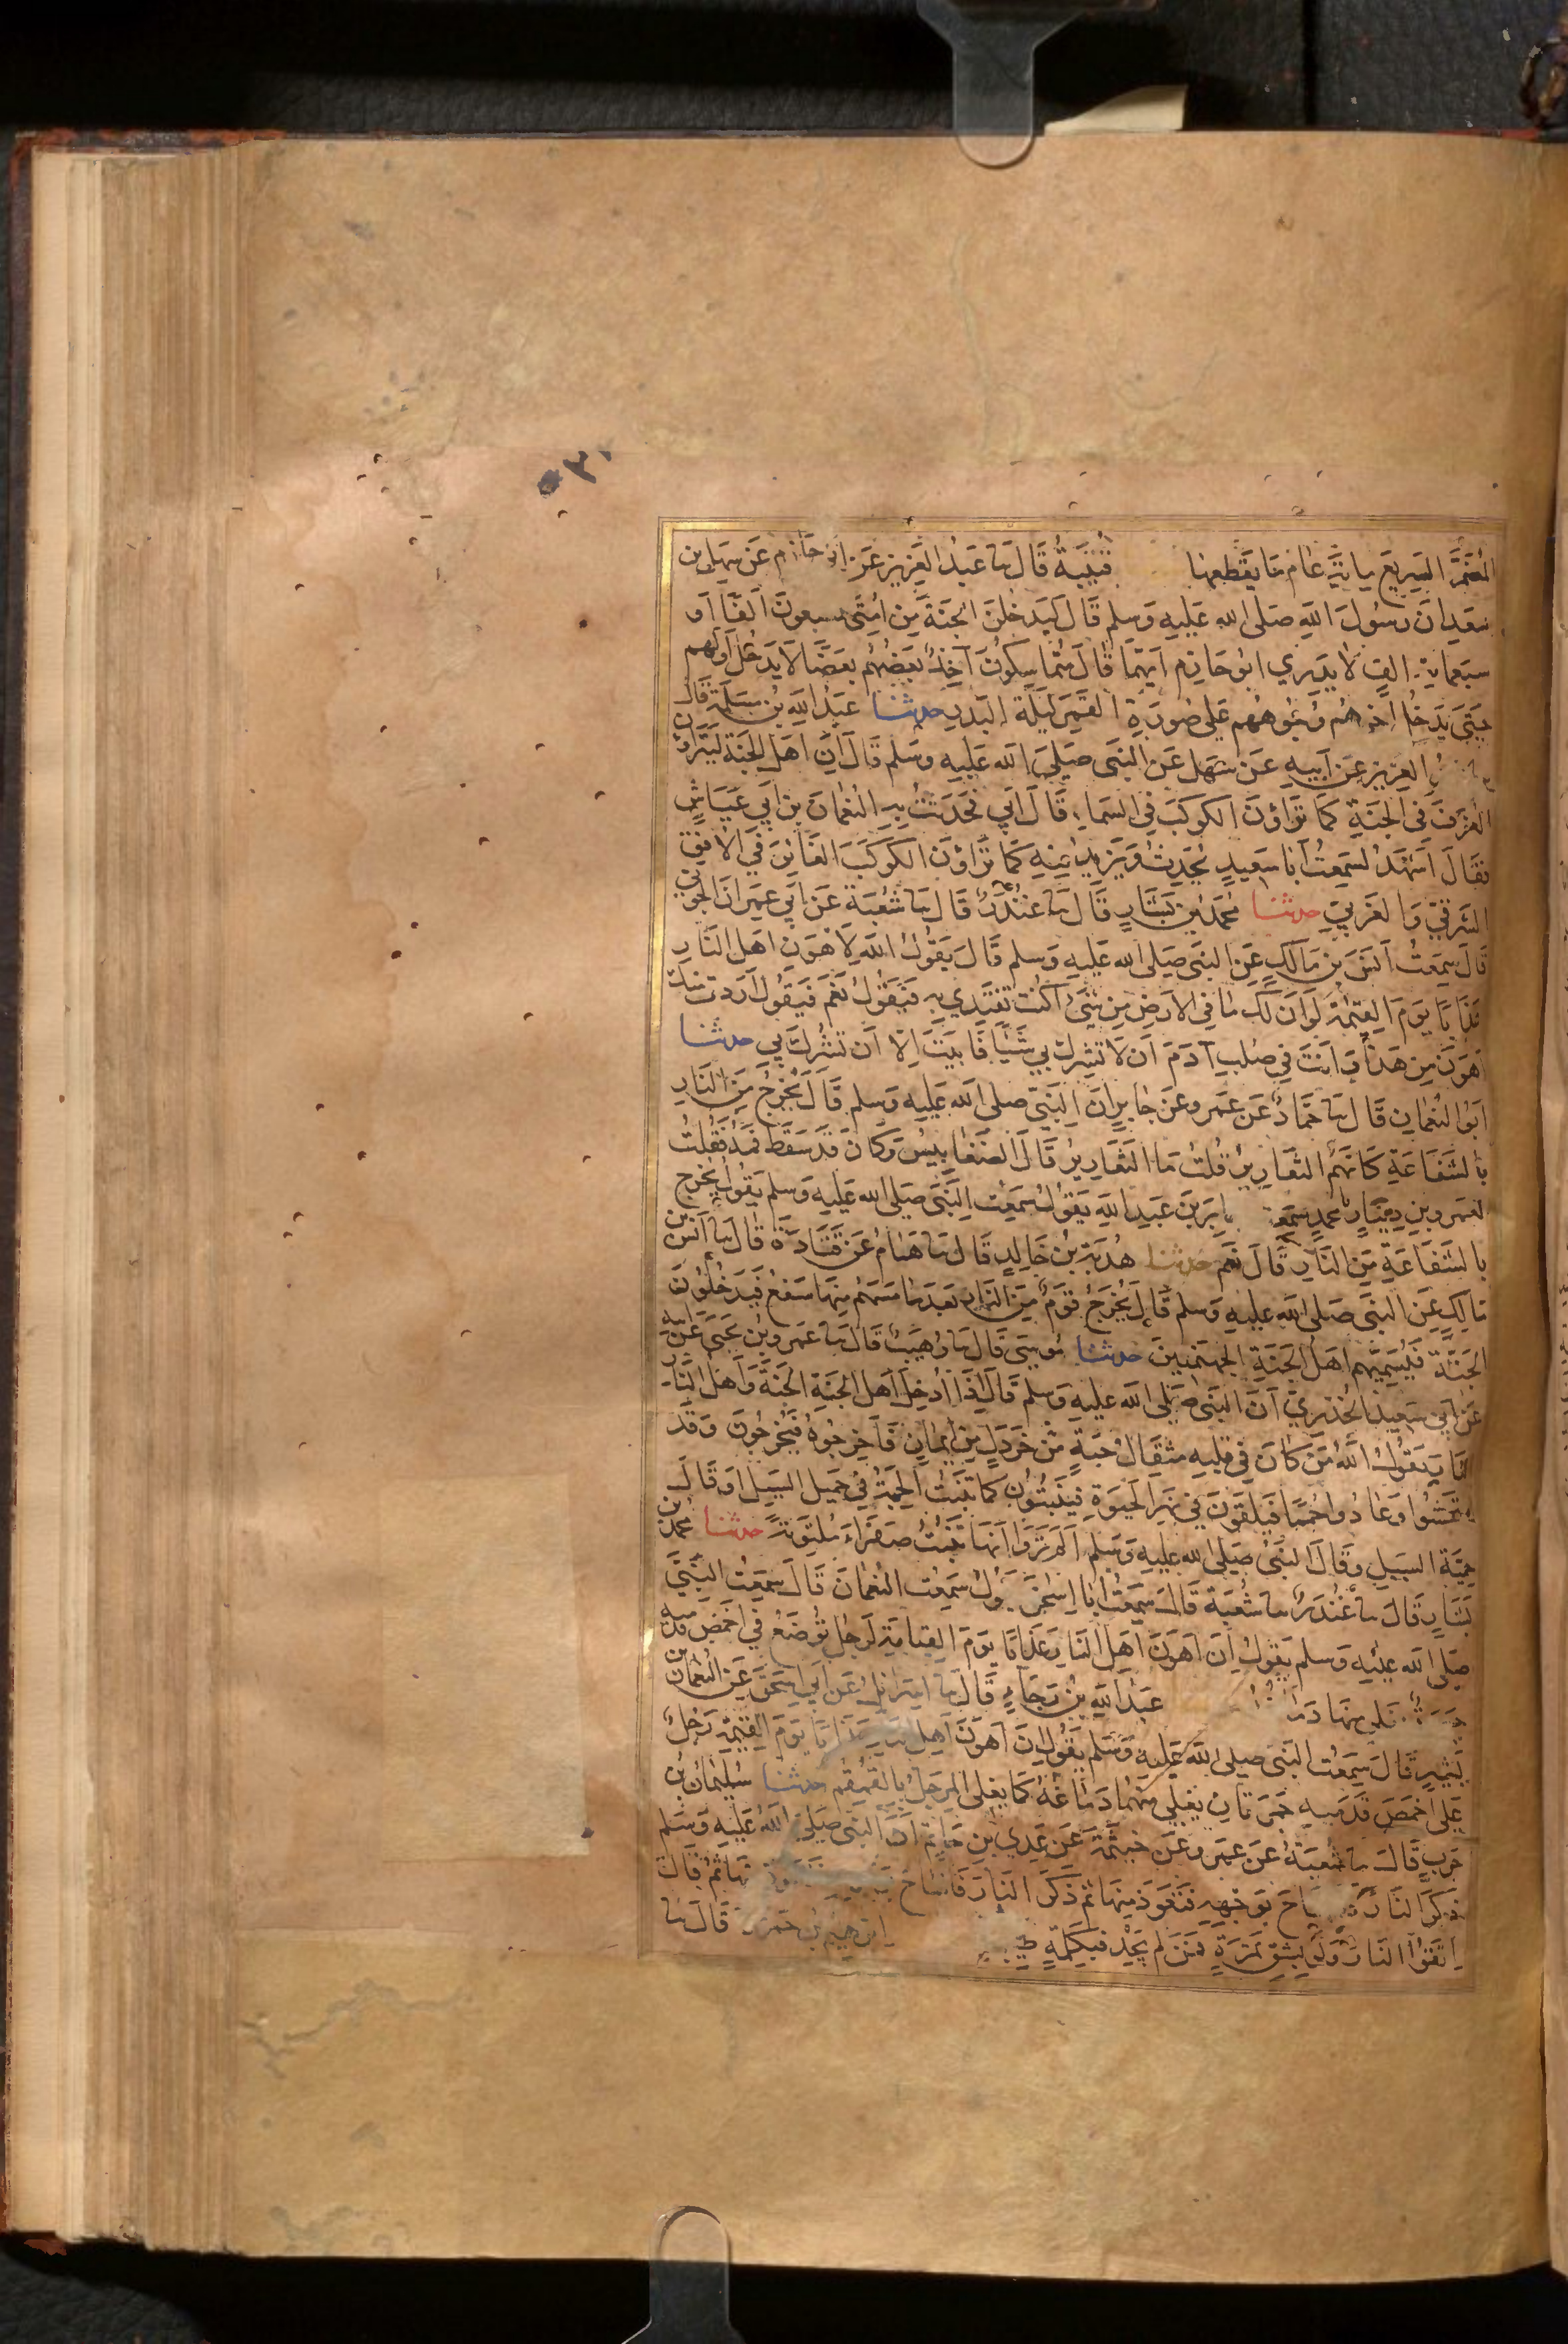 ٣٠
المضمر السريع مائة عام ما يقطعها قتيبة قال سا عبد العزيز عن ابي حازم عن سهل بن
سعد ان رسول الله صلى الله عليه وسلم قال ليدخلن الجنة من امتي سبعون الفا او
سبعماية الف لا يدري ابو حازم ايهما قال متماسكون آخذ بعضهم بعضا لا يدخل اولهم
حتى يدخل اخرهم وجوههم على صورة القمر ليلة البدر حدثنا عبد الله بن مسلمة قال
العزيز عن ابيه عن سهل عن النبي صلى الله عليه وسلم قال ان اهل الجنة ليتراون
الغرف في الجنة كما تراؤن الكوكب في السماء قال ابي فحدثت به النعمان بن ابي عياش
فقال اشهد لسمعت ابا سعيد يحدث ويزيد فيه كما تراؤن الكوكب الغائر في الافق
الشرقي والغربي حدثنا محمد بن بشار قال سا غندر قال سا شعبة عن ابي عمران الجوني
قال سمعت انس بن مالك عن النبي صلى الله عليه وسلم قال يقول الله لاهون اهل النار
عذابا يوم القيمة لو ان لك ما في الارض من شيء اكنت تفتدي به فيقول نعم فيقول اردت منك
اهون من هذا وانت في صلب آدم ان لا تشرك بي شيئا فابيت الا ان تشرك بي حدثنا
ابو النعمان قال سا حماد عن عمرو عن جابر ان النبي صلى الله عليه وسلم قال يخرج من النار
بالشفاعة كانهم الثعارير قلت ما الثعارير قال الضغابيس وكان قد سقط فمه فقلت
لعمرو بن دينار ابا محمد سمعت جابر بن عبد الله يقول سمعت النبي صلى الله عليه وسلم يقول يخرج
بالشفاعة من النار قال نعم حدثنا هدبة بن خالد قال سا همام عن قتادة قال سا انس بن
مالك عن النبي صلى الله عليه وسلم قال يخرج قوم من النار بعد ما مسهم منها سفع فيدخلون
الجنة فيسميهم اهل الجنة الجهنميين حدثنا موسى قال سا وهيب قال سا عمرو بن يحيى عن ابيه
عن ابي سعيد الخدري ان النبي صلى الله عليه وسلم قال اذا ادخل اهل الجنة الجنة واهل النار
النار يقول الله من كان في قلبه مثقال حبة من خردل من ايمان فاخرجوه فيخرجون وقد
امتحشوا وعادوا حمما فيلقون في نهر الحيوة فينبتون كما تنبت الحبة في حميل السيل او قال
حمية السيل وقال النبي صلى الله عليه وسلم الم تروا انها تنبت صفراء ملتوية حدثنا محمد بن
بشار قال سا غندر سا شعبة قال سمعت ابا اسحق يقول سمعت النعمان قال سمعت النبي
صلى الله عليه وسلم يقول ان اهون اهل النار عذابا يوم القيامة لرجل توضع في اخمص قدميه
جمرة يغلي منها دماغه عبد الله بن رجاء قال سا اسرائيل عن ابي اسحق عن النعمان بن
بشير قال سمعت النبي صلى الله عليه وسلم يقول ان اهون اهل النار عذابا يوم القيمة رجل
على اخمص قدميه جمرتان يغلي منهما دماغه كما يغلي المرجل بالقمقم حدثنا سليمان بن
حرب قال سا شعبة عن عمرو عن خيثمة عن عدي بن حاتم ان النبي صلى الله عليه وسلم
ذكر النار فاشاح بوجهه فتعوذ منها ثم ذكر النار فاشاح بوجهه فتعوذ منها ثم قال
اتقوا النار ولو بشق تمرة فمن لم يجد فبكلمة طيبة ابرهيم بن حمزة قال سا